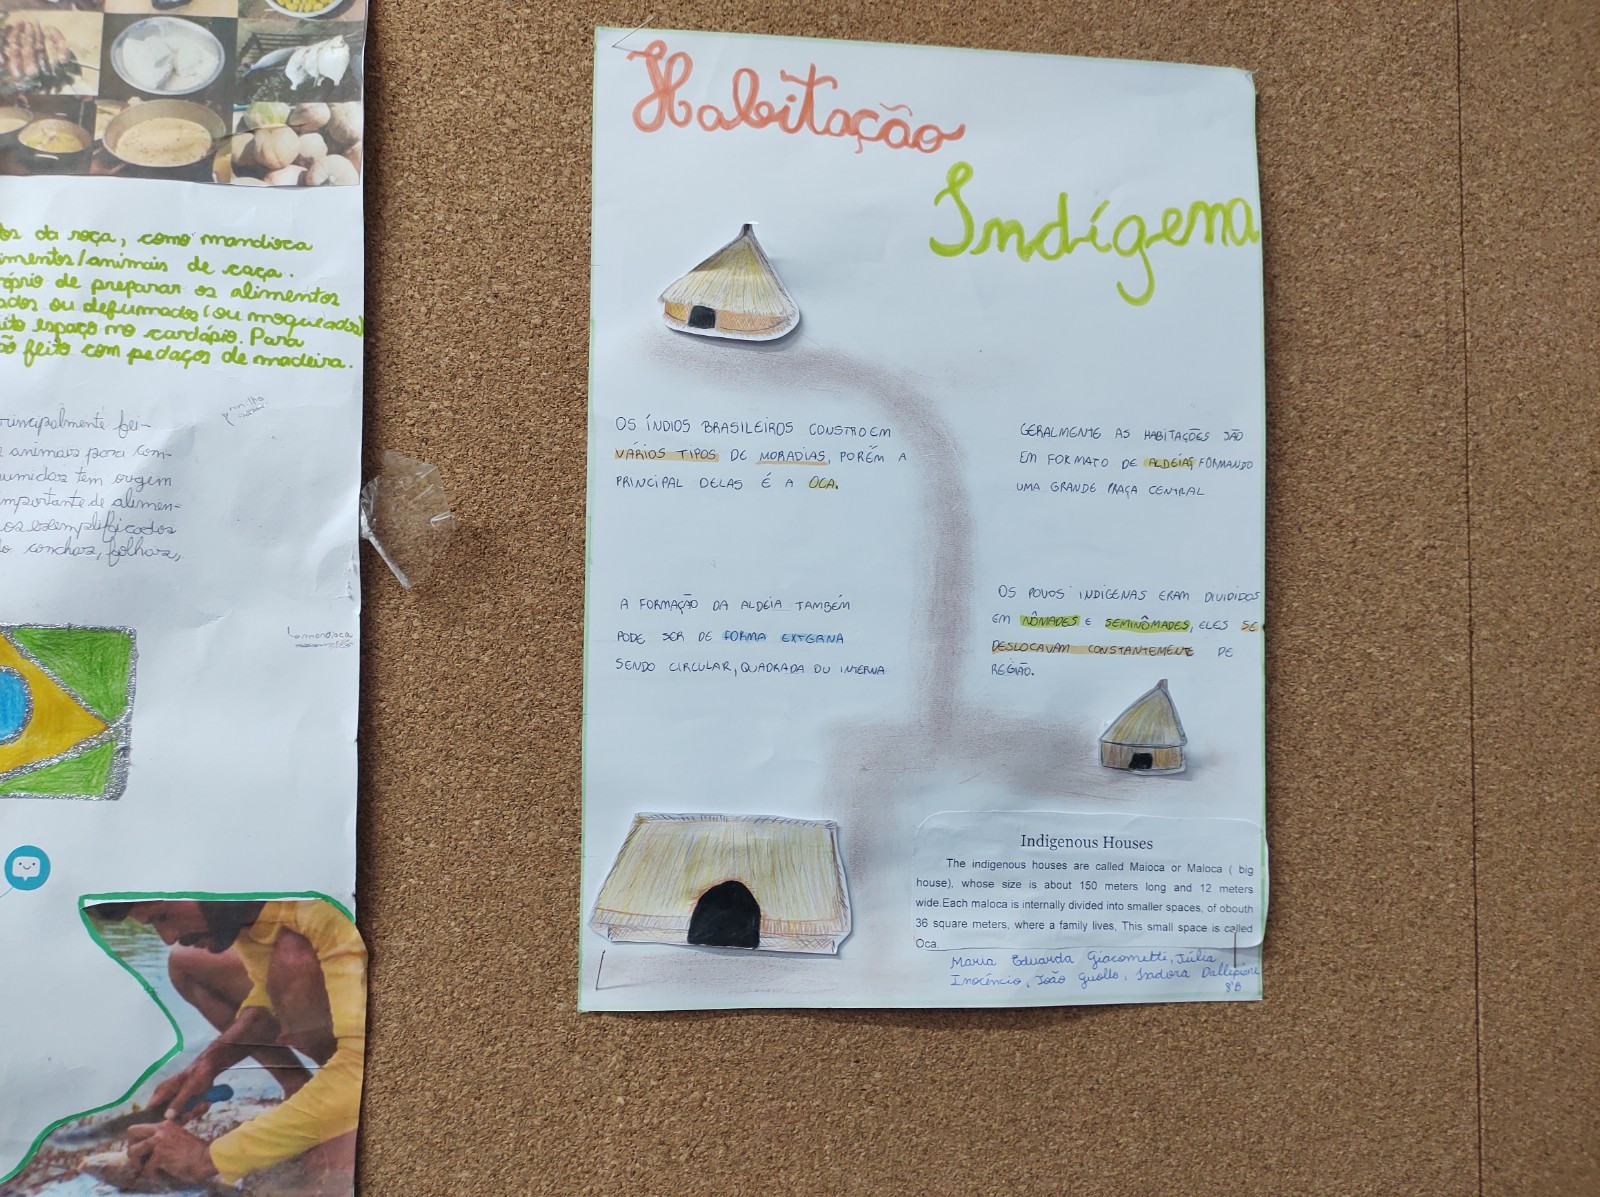 da roça, como mandioca
imentos/animais de caça.
róprio de preparar os alimentos
ados ou defumados (ou moqueados)
espaço no cardápio. Para
ão feito com pedaços de madeira.
rincipalmente fei-
animais para com-
umidos tem origem
importante de alimen-
os exemplificados
conchas, folhas,
mandioca
Habitação
Indígena
OS ÍNDIOS BRASILEIROS CONSTROEM
VÁRIOS TIPOS DE MORADIAS, PORÉM A
PRINCIPAL DELAS É A OCA.
GERALMENTE AS HABITAÇÕES SÃO
EM FORMATO DE ALDEIAS, FORMANDO
UMA GRANDE PRAÇA CENTRAL
A FORMAÇÃO DA ALDEIA TAMBÉM
PODE SER DE FORMA EXTERNA
SENDO CIRCULAR, QUADRADA OU INTERNA
OS POVOS INDÍGENAS ERAM DIVIDIDOS
EM NÔMADES E SEMINÔMADES, ELES SE
DESLOCAVAM CONSTANTEMENTE DE
REGIÃO.
Indigenous Houses
The indigenous houses are called Maioca or Maloca ( big
house), whose size is about 150 meters long and 12 meters
wide.Each maloca is internally divided into smaller spaces, of obouth
36 square meters, where a family lives, This small space is called
Oca.
Maria Eduarda Giacometti, Júlia
Inocêncio, João Guollo, Isadora Dallepiane
8°B